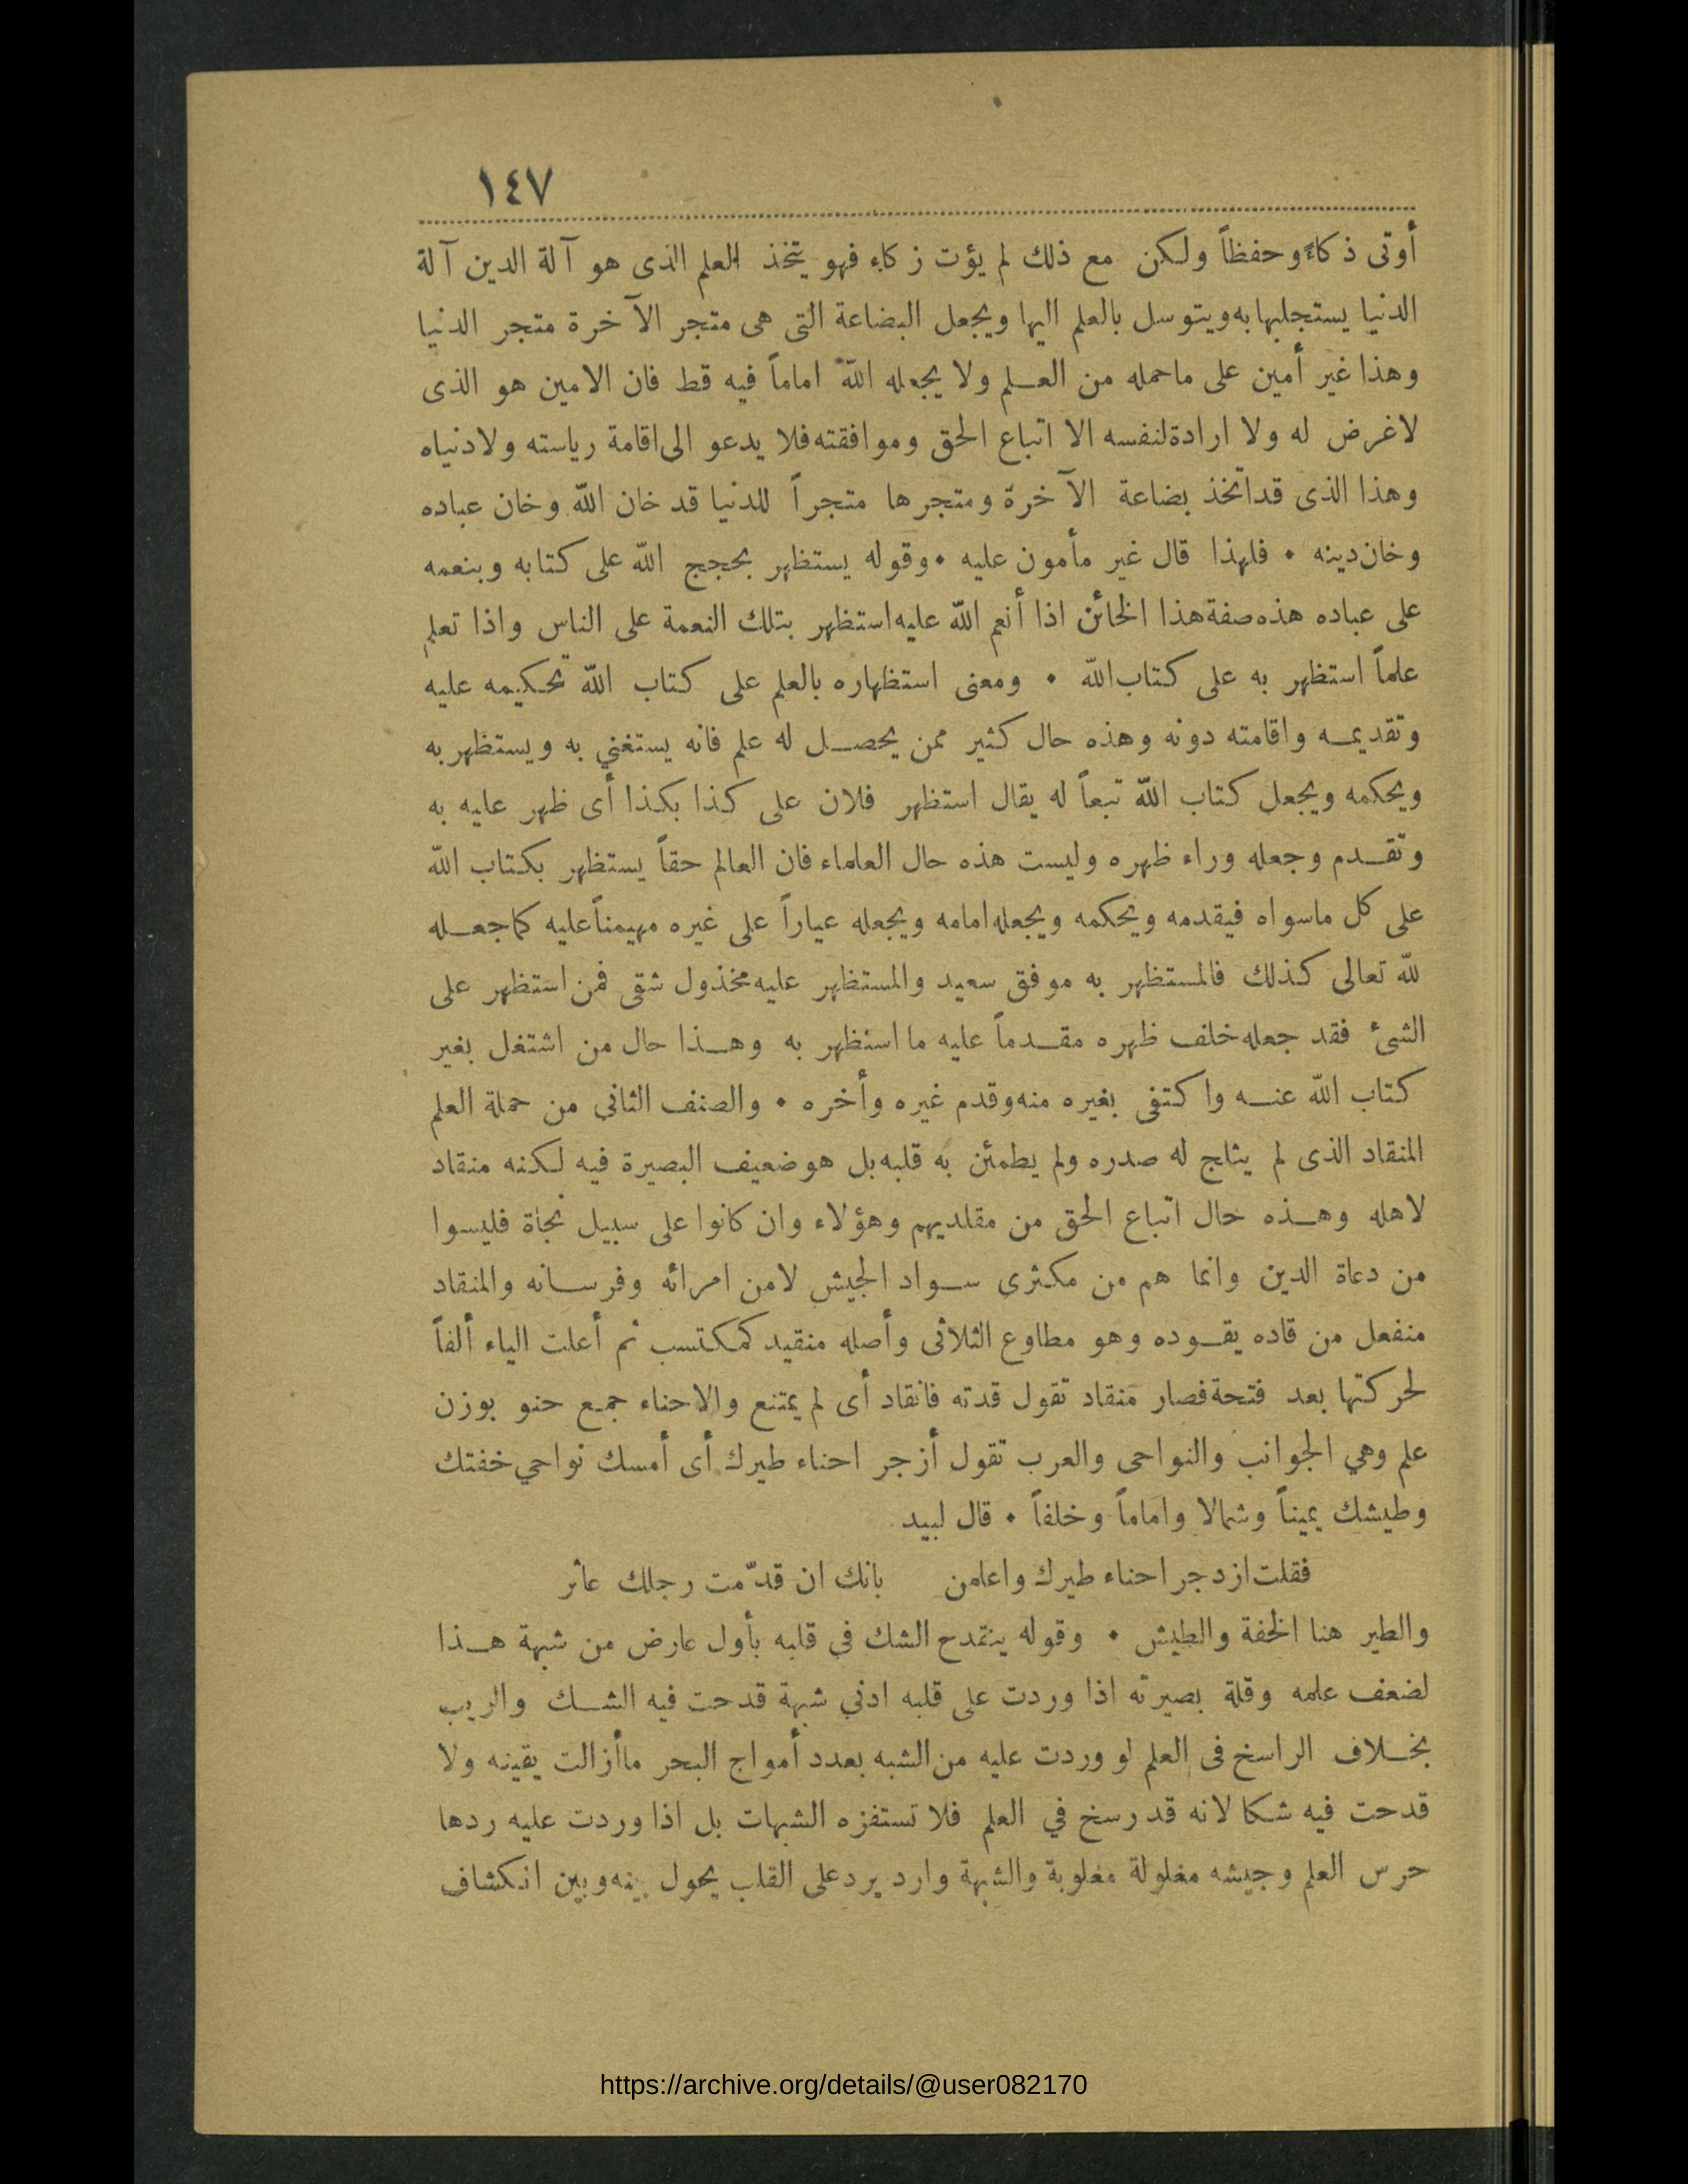 ١٤٧
أوتى ذكاءً وحفظاً ولكن مع ذلك لم يؤت زكاء فهو يتخذ العلم الذى هو آلة الدين آلة
الدنيا يستجلبها به ويتوسل بالعلم اليها ويجعل البضاعة التى هى متجر الآخرة متجر الدنيا
وهذا غير أمين على ماحمله من العلم ولا يجعله الله اماماً فيه قط فان الامين هو الذى
لاغرض له ولا ارادة لنفسه الا اتباع الحق وموافقته فلا يدعو الى اقامة رياسته ولا دنياه
وهذا الذى قد اتخذ بضاعة الآخرة ومتجرها متجراً للدنيا قد خان الله وخان عباده
وخان دينه • فلهذا قال غير مأمون عليه • وقوله يستظهر بحجج الله على كتابه وبنعمه
على عباده هذه صفة هذا الخائن اذا أنعم الله عليه استظهر بتلك النعمة على الناس واذا تعلم
علماً استظهر به على كتاب الله • ومعنى استظهاره بالعلم على كتاب الله تحكيمه عليه
وتقديمه واقامته دونه وهذه حال كثير ممن يحصل له علم فانه يستغني به ويستظهر به
ويحكمه ويجعل كتاب الله تبعاً له يقال استظهر فلان على كذا بكذا أى ظهر عليه به
وتقدم وجعله وراء ظهره وليست هذه حال العلماء فان العالم حقاً يستظهر بكتاب الله
على كل ماسواه فيقدمه ويحكمه ويجعله امامه ويجعله عياراً على غيره مهيمناً عليه كما جعله
لله تعالى كذلك فالمستظهر به موفق سعيد والمستظهر عليه مخذول شقى فمن استظهر على
الشئ فقد جعله خلف ظهره مقدماً عليه ما استظهر به وهذا حال من اشتغل بغير
كتاب الله عنه واكتفى بغيره منه وقدم غيره وأخره • والصنف الثانى من حملة العلم
المنقاد الذى لم يثلج له صدره ولم يطمئن به قلبه بل هو ضعيف البصيرة فيه لكنه منقاد
لاهله وهذه حال اتباع الحق من مقلديهم وهؤلاء وان كانوا على سبيل نجاة فليسوا
من دعاة الدين وانما هم من مكثرى سواد الجيش لا من امرائه وفرسانه والمنقاد
منفعل من قاده يقوده وهو مطاوع الثلاثى وأصله منقيد كمكتسب ثم أعلت الياء ألفاً
لحركتها بعد فتحة فصار منقاد تقول قدته فانقاد أى لم يمتنع والاحناء جمع حنو بوزن
علم وهي الجوانب والنواحى والعرب تقول أزجر احناء طيرك أى أمسك نواحي خفتك
وطيشك يميناً وشمالا واماماً وخلفاً • قال لبيد
فقلت ازدجر احناء طيرك واعلمن بانك ان قدّمت رجلك عاثر
والطير هنا الخفة والطيش • وقوله ينقدح الشك فى قلبه بأول عارض من شبهة هذا
لضعف علمه وقلة بصيرته اذا وردت على قلبه ادني شبهة قدحت فيه الشك والريب
بخلاف الراسخ فى العلم لو وردت عليه من الشبه بعدد أمواج البحر ما أزالت يقينه ولا
قدحت فيه شكا لانه قد رسخ في العلم فلا تستفزه الشبهات بل اذا وردت عليه ردها
حرس العلم وجيشه مغلولة مغلوبة والشبهة وارد يرد على القلب يحول بينه وبين انكشاف
https://archive.org/details/@user082170